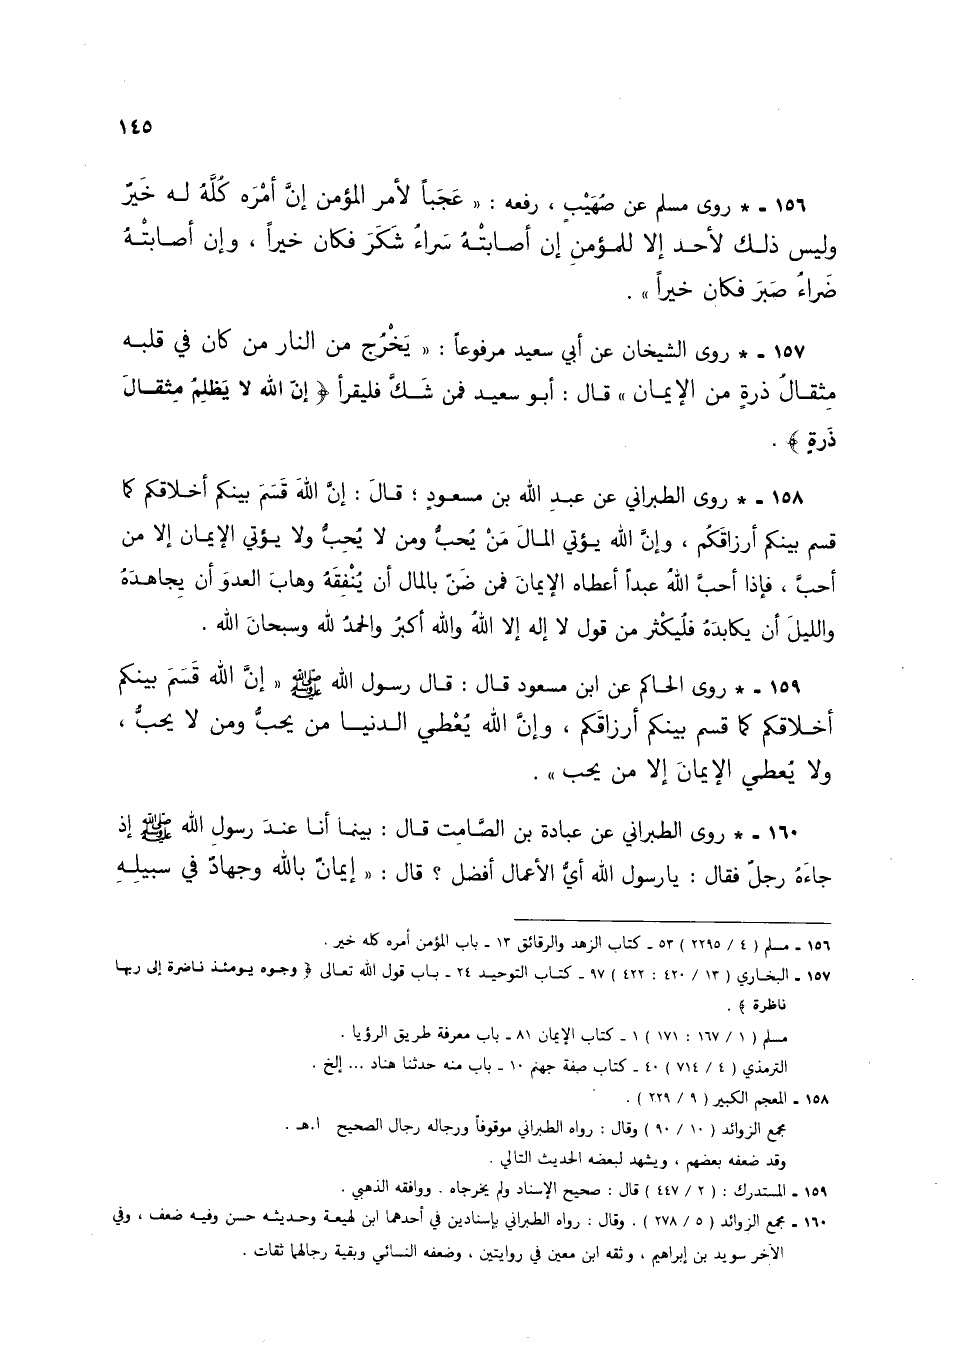 ١٤٥
١٥٦ ـ * روى مسلم عن صُهَيْبٍ ، رفعه : « عَجَباً لأمر المؤمن إنَّ أمْرَه كُلَّهُ لـه خَيرٌ
وليس ذلـك لأحـد إلا للمـؤمنِ إن أصـابتْـهُ سَراءُ شكَرَ فكان خيراً ، وإن أصـابتْـهُ
ضَراءُ صبَرَ فكان خيراً » .
١٥٧ ـ * روى الشيخان عن أبي سعيد مرفوعاً : « يَخْرُج من النار من كان في قلبـه
مثقـالُ ذرةٍ من الإيمـان » قـال : أبـو سعيـد فمن شَـكَّ فليقرأ ﴿ إنّ الله لا يَظلِمُ مِثقـالَ
ذَرةٍ ﴾ .
١٥٨ ـ * روى الطبراني عن عبـدِ الله بن مسعـودٍ ؛ قـالَ : إنَّ اللهَ قَسَمَ بينكم أخـلاقكم كما
قسم بينكم أرزاقَكُم ، وإنَّ الله يـؤتي المـالَ مَنْ يُحبُّ ومن لا يُحِبُّ ولا يـؤتي الإيمـان إلا من
أحبَّ ، فإذا أحبَّ اللهُ عبداً أعطاه الإيمانَ فمن ضَنّ بالمال أن يُنْفِقَهُ وهابَ العدوَ أن يجاهـدَهُ
والليلَ أن يكابدَهُ فلْيكْثر من قول لا إله إلا اللهُ والله أكبرُ والحمدُ لله وسبحانَ الله .
١٥٩ ـ * روى الحـاكم عن ابن مسعود قـال : قـال رسـول الله ﷺ « إنَّ الله قَسَمَ بينكم
أخـلاقكم كما قسم بينكم أرزاقَكم ، وإنَّ الله يُعْطي الـدنيـا من يحبُّ ومن لا يحبُّ ،
ولا يُعطي الإيمانَ إلا من يحب » .
١٦٠ ـ * روى الطبراني عن عبادة بن الصَّامت قـال : بينما أنـا عنـدَ رسول الله ﷺ إذ
جاءَهُ رجلٌ فقال : يارسول الله أيُّ الأعمال أفضل ؟ قال : « إيمانٌ بالله وجهادٌ في سبيلِـهِ
١٥٦ ـ مسلم ( ٤ / ٢٢٩٥ ) ٥٣ ـ كتاب الزهد والرقائق ١٣ ـ باب المؤمن أمره كله خير .
١٥٧ ـ البخـاري ( ١٣ / ٤٢٠ : ٤٢٢ ) ٩٧ ـ كتـاب التوحيـد ٢٤ ـ بـاب قول الله تعـالى ﴿ وجوه يـومئـذ نـاضرة إلى ربهـا
ناظرة ﴾ .
مسلم ( ١ / ١٦٧ : ١٧١ ) ١ ـ كتاب الإيمان ٨١ ـ باب معرفة طريق الرؤيا .
الترمذي ( ٤ / ٧١٤ ) ٤٠ ـ كتاب صفة جهنم ١٠ ـ باب منه حدثنا هناد ... إلخ .
١٥٨ ـ المعجم الكبير ( ٩ / ٢٢٩ ) .
مجمع الزوائد ( ١٠ / ٩٠ ) وقال : رواه الطبراني موقوفاً ورجاله رجال الصحيح ا.هـ .
وقد ضعفه بعضهم ، ويشهد لبعضه الحديث التالي .
١٥٩ ـ المستدرك : ( ٢ / ٤٤٧ ) قال : صحيح الإسناد ولم يخرجاه . ووافقه الذهبي .
١٦٠ ـ مجمع الزوائـد ( ٥ / ٢٧٨ ) . وقال : رواه الطبراني بإسنادين في أحدهما ابن لهيعـة وحـديثـه حسن وفيـه ضعف ، وفي
الآخر سويد بن إبراهيم ، وثقه ابن معين في روايتين ، وضعفه النسائي وبقية رجالهما ثقات .